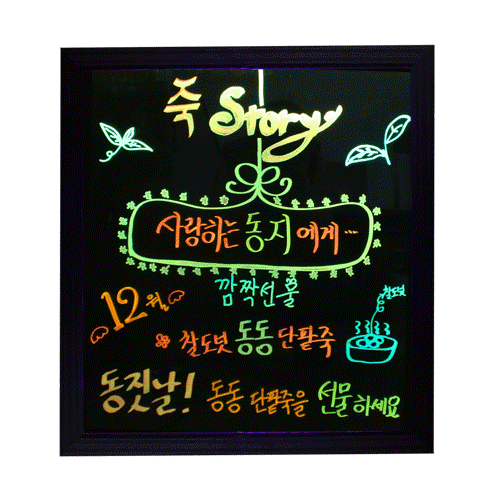 죽 Story
사랑하는 동지에게...
깜짝선물
12월
찰도넛
찰도넛 동동 단팥죽
동짓날! 동동 단팥죽을 선물하세요